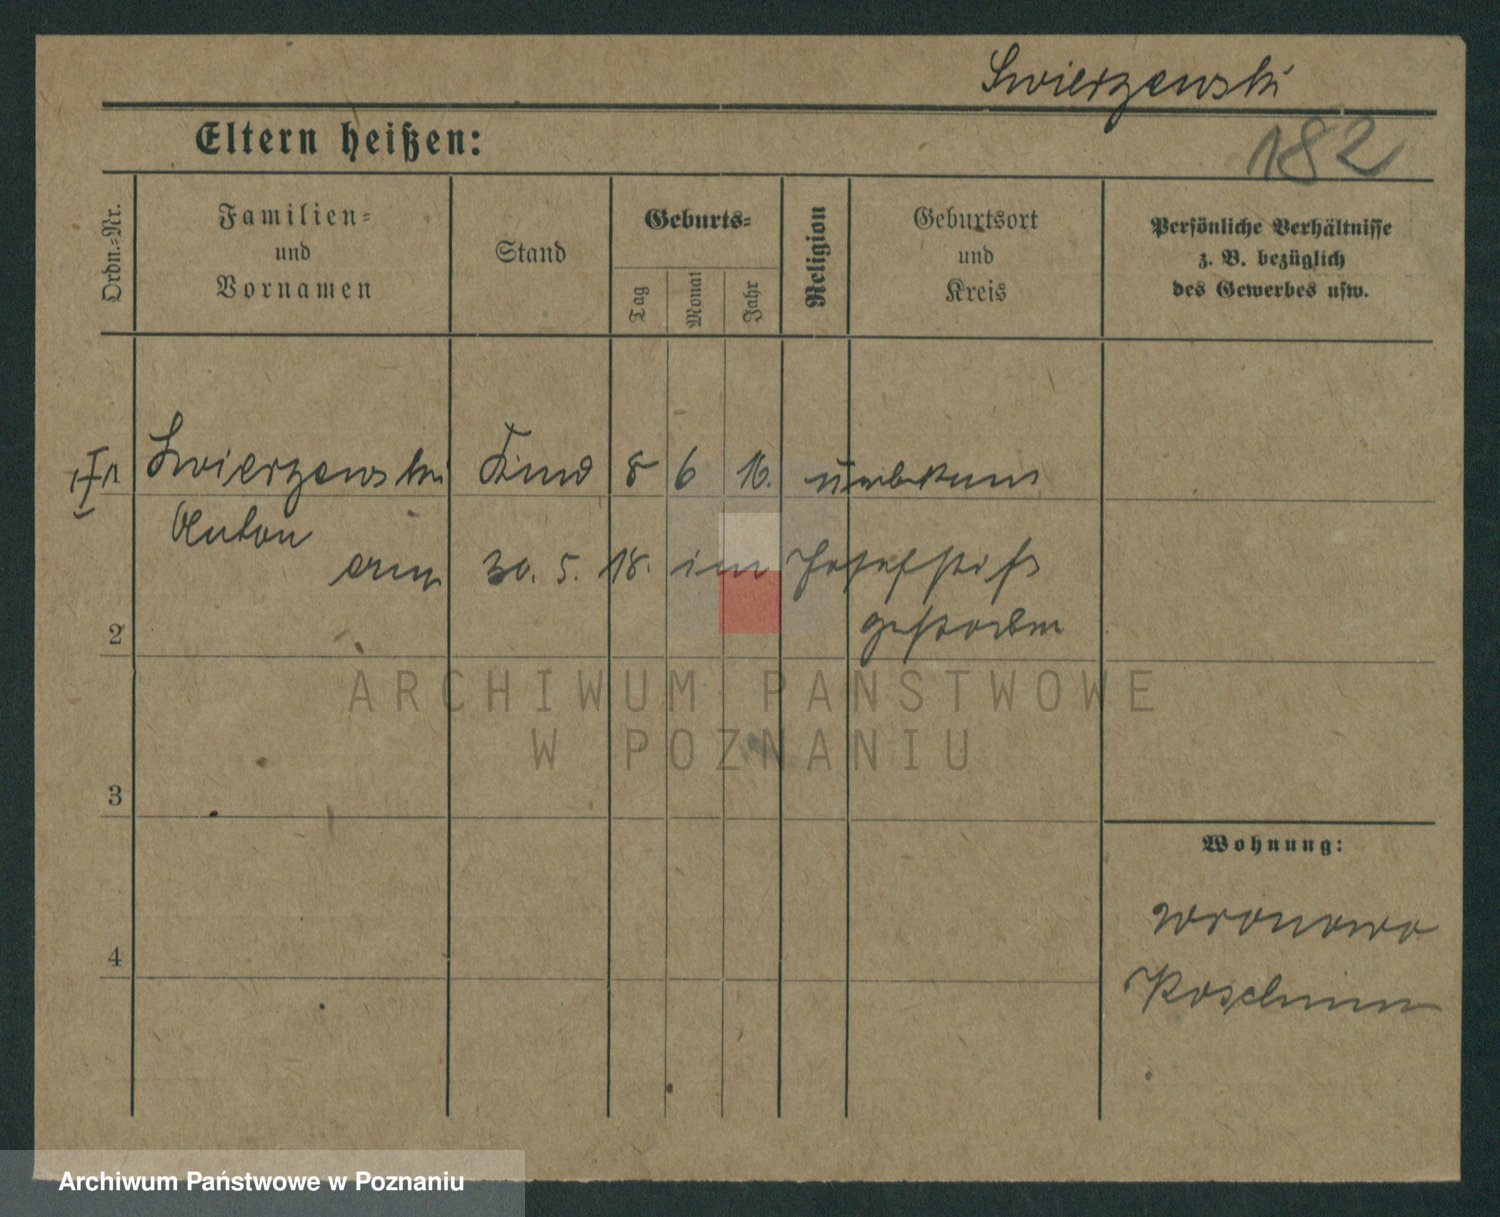 Swierzewski
Eltern heißen:
182
Ordn.-Nr.
Familien-
und
Vornamen
Stand
Geburts-
Tag
Monat
Jahr
Religion
Geburtsort
und
Kreis
Persönliche Verhältnisse
z. B. bezüglich
des Gewerbes usw.
1 Swierzewski Kind 8 6 16. unbekannt
Anton
am 30. 5. 18. im Josefstift
gestorben
2
ARCHIWUM PAŃSTWOWE
W POZNANIU
3
Wohnung:
Wronowo
Koschmin
4
Archiwum Państwowe w Poznaniu